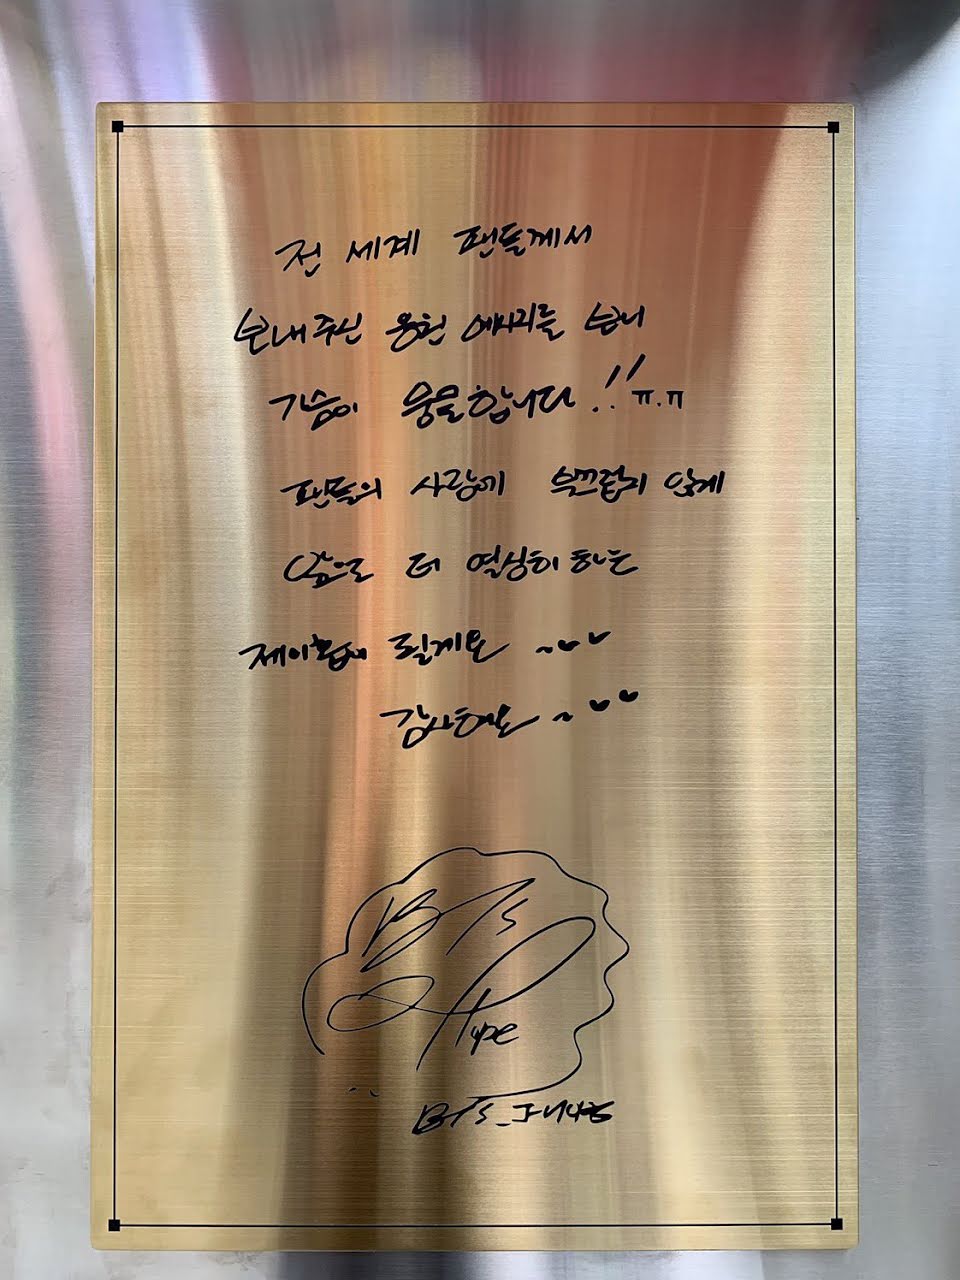 전 세계 팬들께서
보내주신 응원 메세지를 보니
가슴이 뭉클합니다!! ㅠ.ㅠ
팬들의 사랑에 부끄럽지 않게
앞으로 더 열심히 하는
제이홉이 될게요 ~
감사해요 ~
BTS
Hope
BTS_J-HOPE